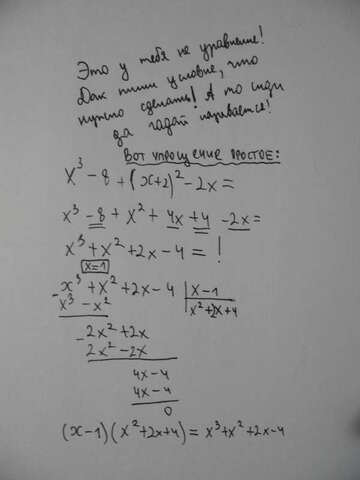 Это у тебя не уравнение!
Дак пиши условие, что
нужно сделать! А то сиди
да гадай называется!
Вот упрощение простое:
x³ - 8 + (x+2)² - 2x =
x³ - 8 + x² + 4x + 4 - 2x =
x³ + x² + 2x - 4 = !
x=1
- x³ + x² + 2x - 4 | x - 1
x³ - x² x² + 2x + 4
- 2x² + 2x
2x² - 2x
4x - 4
4x - 4
0
(x-1)(x²+2x+4) = x³+x²+2x-4